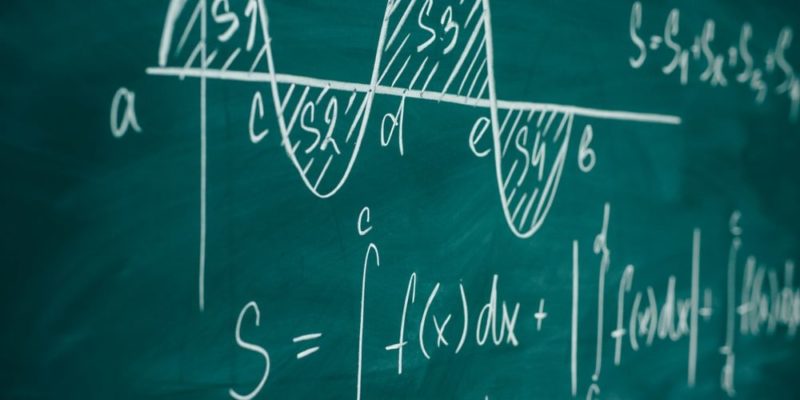 S1 S3 S=S1+Sx+S3+S4
a c S2 d e S4 b
S = ∫ c f(x)dx + | ∫ d c f(x)dx | + ∫ e d f(x)dx